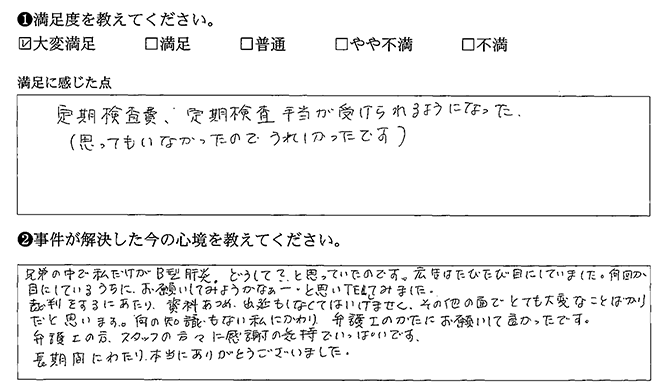 ❶満足度を教えてください。
☑大変満足 □満足 □普通 □やや不満 □不満
満足に感じた点
定期検査費、定期検査手当が受けられるようになった.
(思ってもいなかったのでうれしかったです)
❷事件が解決した今の心境を教えてください。
兄弟の中で私だけがB型肝炎。どうして?と思っていたのです。広告はたびたび目にしていました。何回か
目にしているうちに、お願いしてみようかなぁー・と思いTELしてみました。
裁判をするにあたり、資料あつめ、出廷もしなくてはいけませんし、その他の面でとても大変なことばかり
だと思います。何の知識もない私にかわり 弁護士のかたにお願いして良かったです。
弁護士の方、スタッフの方々に感謝の気持でいっぱいです。
長期間にわたり、本当にありがとうございました。